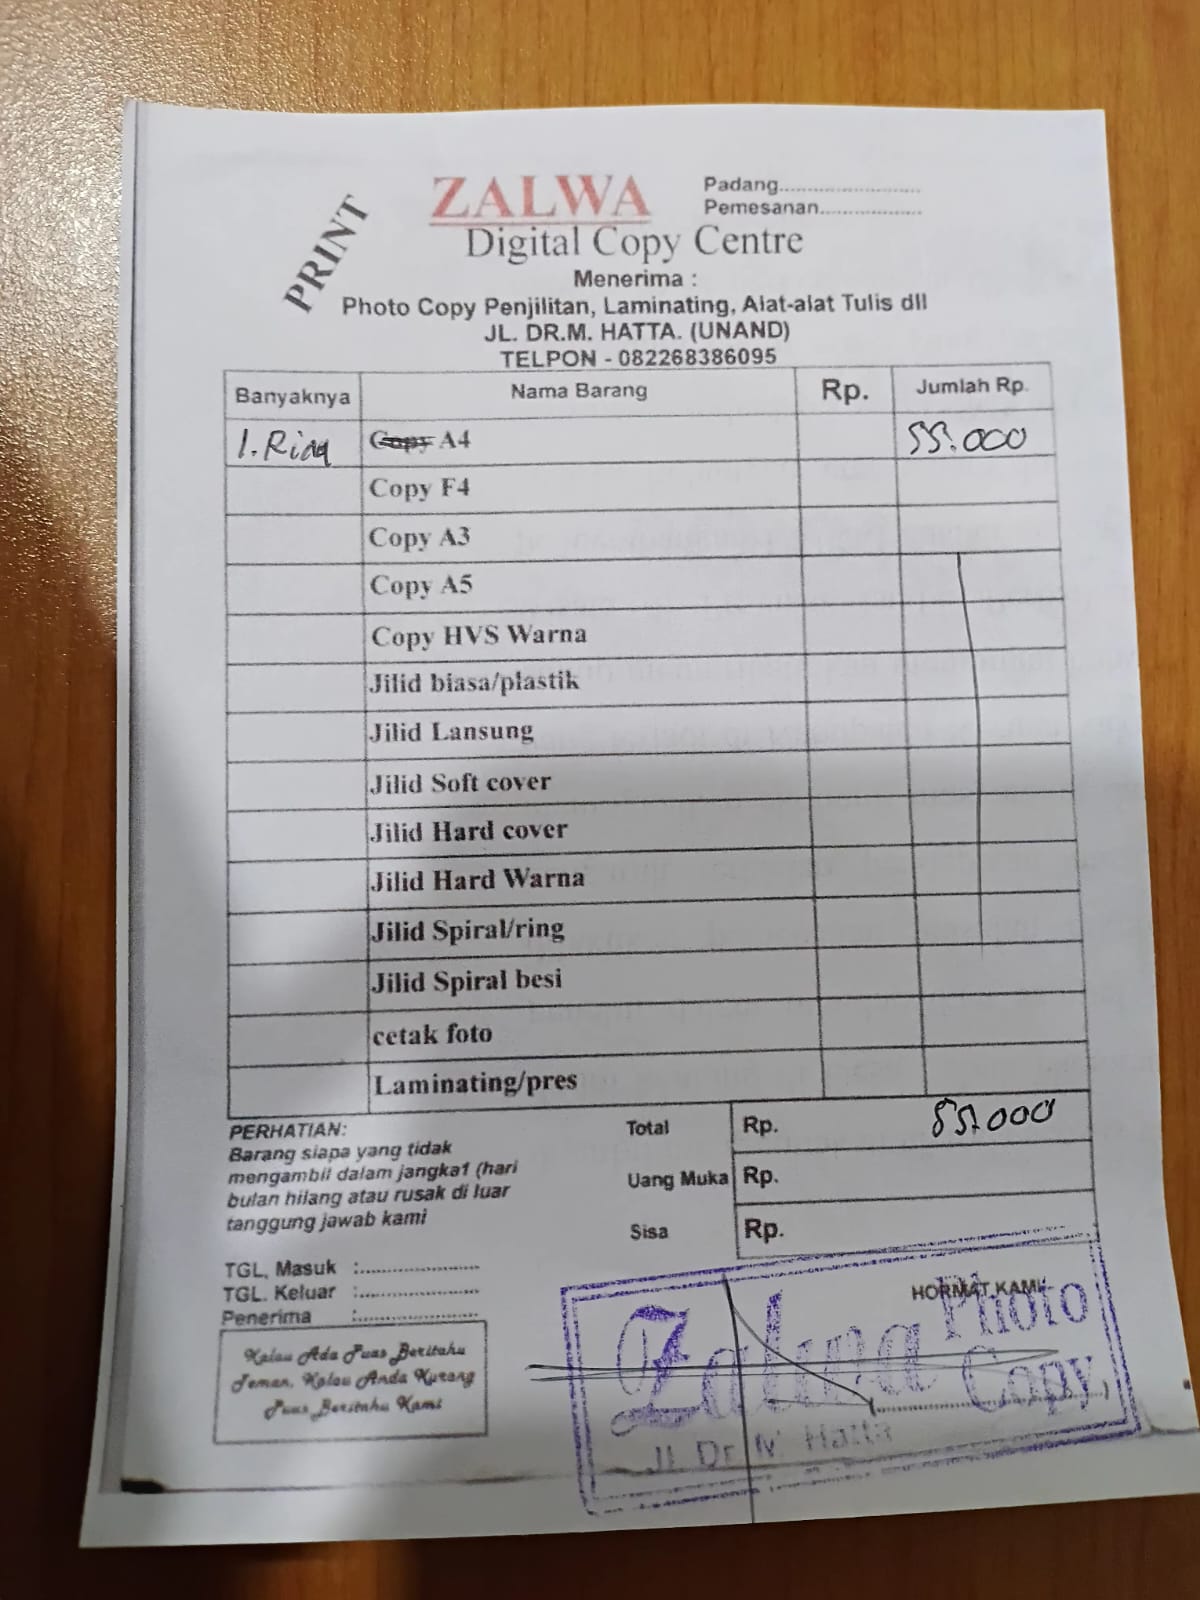 PRINT
ZALWA
Padang........................
Pemesanan..................
Digital Copy Centre
Menerima :
Photo Copy Penjilitan, Laminating, Alat-alat Tulis dll
JL. DR.M. HATTA. (UNAND)
TELPON - 082268386095
Banyaknya Nama Barang Rp. Jumlah Rp.
1. Rim Copy A4 55.000
Copy F4
Copy A3
Copy A5
Copy HVS Warna
Jilid biasa/plastik
Jilid Lansung
Jilid Soft cover
Jilid Hard cover
Jilid Hard Warna
Jilid Spiral/ring
Jilid Spiral besi
cetak foto
Laminating/pres
Total Rp. 55.000
Uang Muka Rp.
Sisa Rp.
PERHATIAN:
Barang siapa yang tidak
mengambil dalam jangka1 (hari
bulan hilang atau rusak di luar
tanggung jawab kami
TGL, Masuk :........................
TGL. Keluar :........................
Penerima :........................
Kalau Ada Puas Beritahu
Teman, Kalau Anda Kurang
Puas Beritahu Kami
HORMAT KAMI
Zalwa Photo
Copy
Jl. Dr. M Hatta